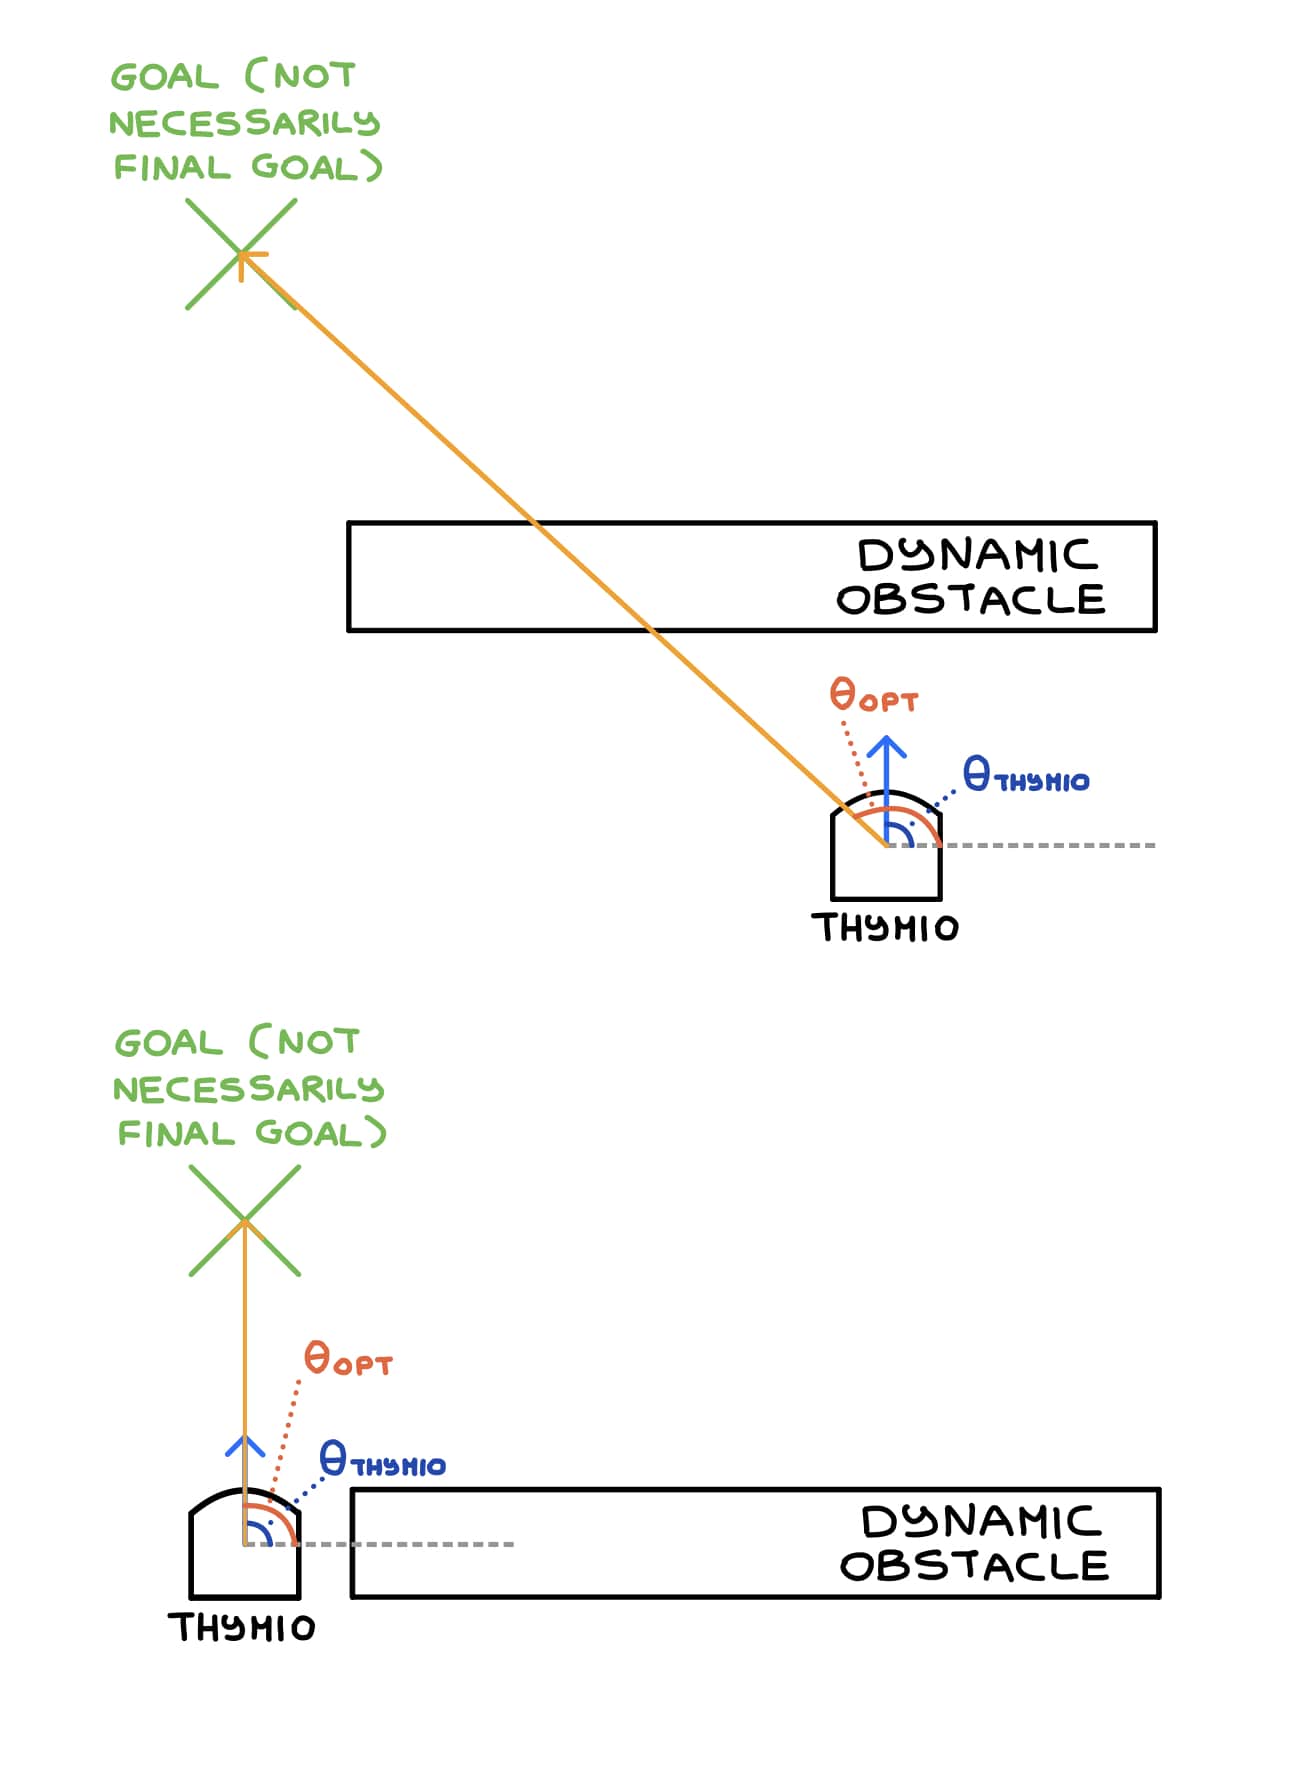 GOAL (NOT
NECESSARILY
FINAL GOAL)
DYNAMIC
OBSTACLE
θOPT
θTHYMIO
THYMIO
GOAL (NOT
NECESSARILY
FINAL GOAL)
θOPT
θTHYMIO
DYNAMIC
OBSTACLE
THYMIO